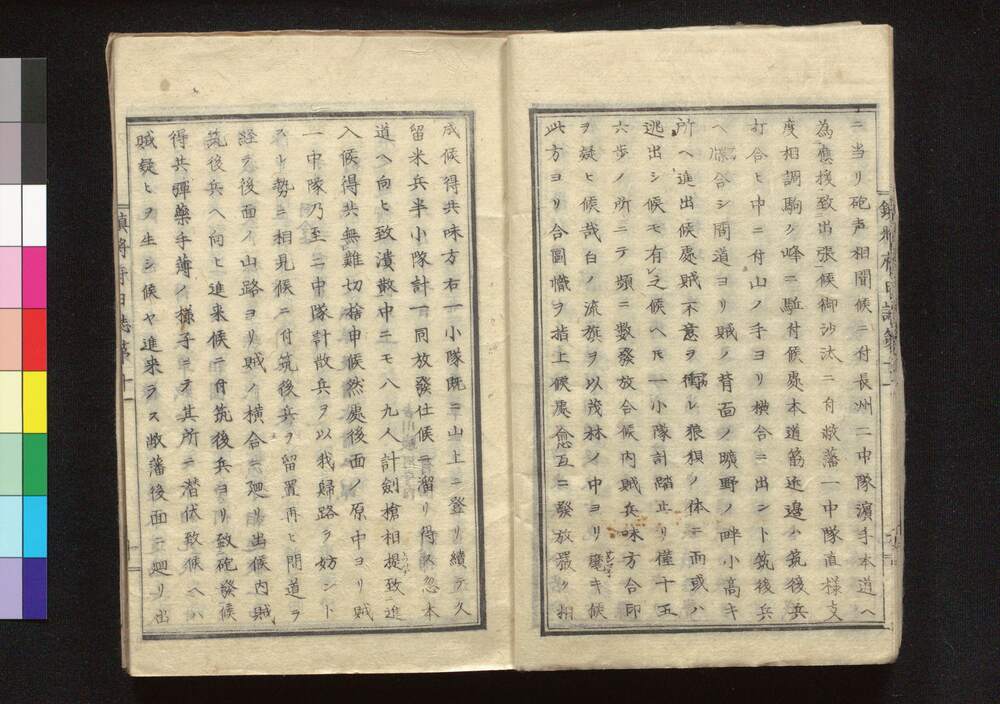 ニ当リ砲声相聞候ニ付長州二中隊濱手本道ヘ
為應援致出張候御沙汰ニ付敝藩一中隊直様支
度相調駒ケ峰ニ馳付候處本道筋近邊ハ筑後兵
打合ヒ中ニ付山ノ手ヨリ横合ニ出ント筑後兵
ヘ牒合シ間道ヨリ賊ノ背面ノ曠野ノ畔小高キ
所ヘ進出候處賊不意ヲ衝レ狼狽ノ体ニ而或ハ
逃出シ候モ有之候ヘ𪜈一小隊計踏止リ僅十五
六歩ノ所ニテ頻ニ數發放合候内賊兵味方合印
ヲ疑ヒ候哉白ノ流旗ヲ以茂林ノ中ヨリ麾キ候
此方ヨリ合圖幟ヲ指上候處愈互ニ發放嚴ク相
成候得共味方右一小隊既ニ山上ニ登リ續テ久
留米兵半小隊計一同放發仕候ニ溜リ得ス忽本
道ヘ向ヒ致潰散中ニモ八九人計劍槍相提致進
入候得共無難切捨申候然處後面ノ原中ヨリ賊
一中隊乃至二中隊計散兵ヲ以我歸路ヲ妨ント
スル勢ニ相見候ニ付筑後兵ヲ留置再ヒ間道ヲ
経テ後面ノ山路ヨリ賊ノ横合ニ廻リ出候内賊
筑後兵ヘ向ヒ進来候ニ付筑後兵ヨリ致砲發候
得共彈藥手薄ノ様子ニテ其所ニ潜伏致候ヘハ
賊疑ヒヲ生シ候ヤ進来ラス敝藩後面ニ廻リ出
鎮將府日誌第十一